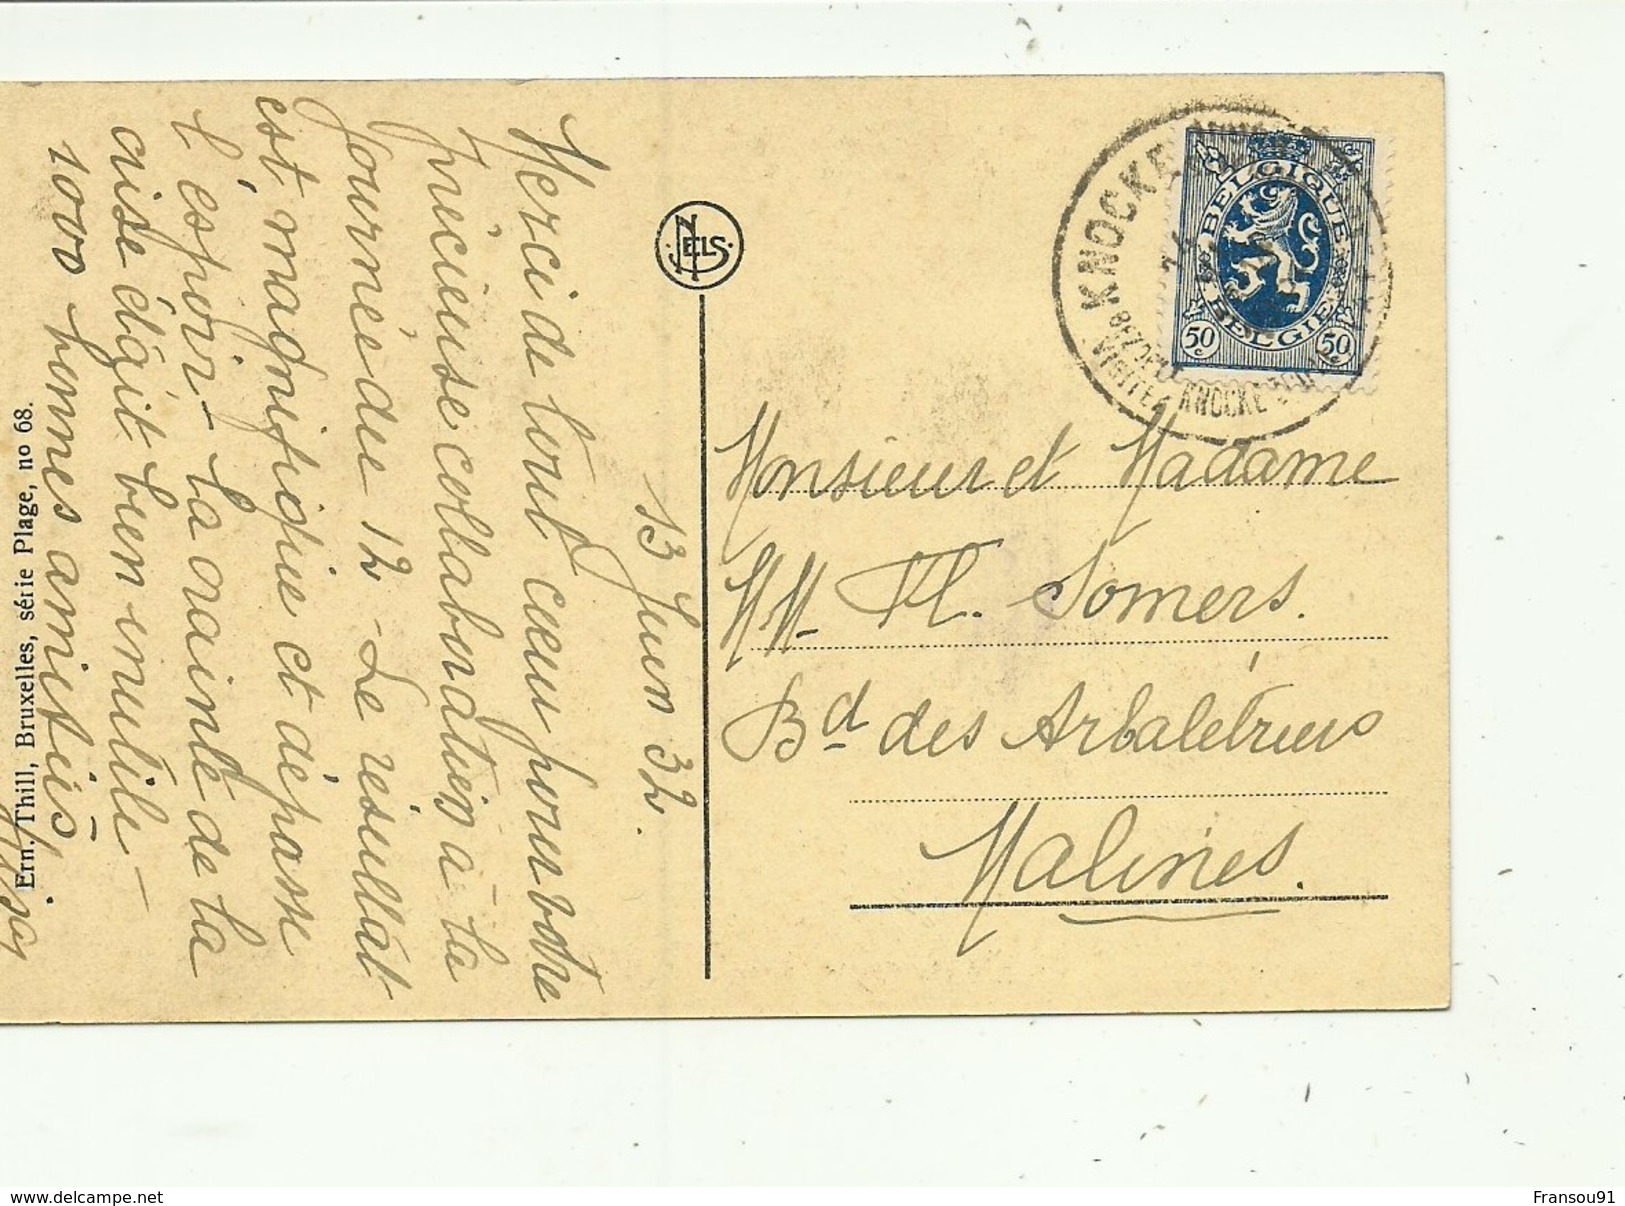 13 Juin 32.
Merci de tout cœur pour votre
précieuse collaboration à la
Journée du 12 - Le résultat
est magnifique et dépasse
l'espoir - La crainte de la
crise était bien inutile -
1000 bonnes amitiés
Ern. Thill, Bruxelles, série Plage, no 68.
NELS
KNOCKE
BEZOEKT
VISITEZ KNOCKE
BELGIQUE
BELGIE
50 c
50 c
Monsieur et Madame
MM. Fl. Somers.
Bd des Arbalétriers
Malines.
www.delcampe.net
Fransou91